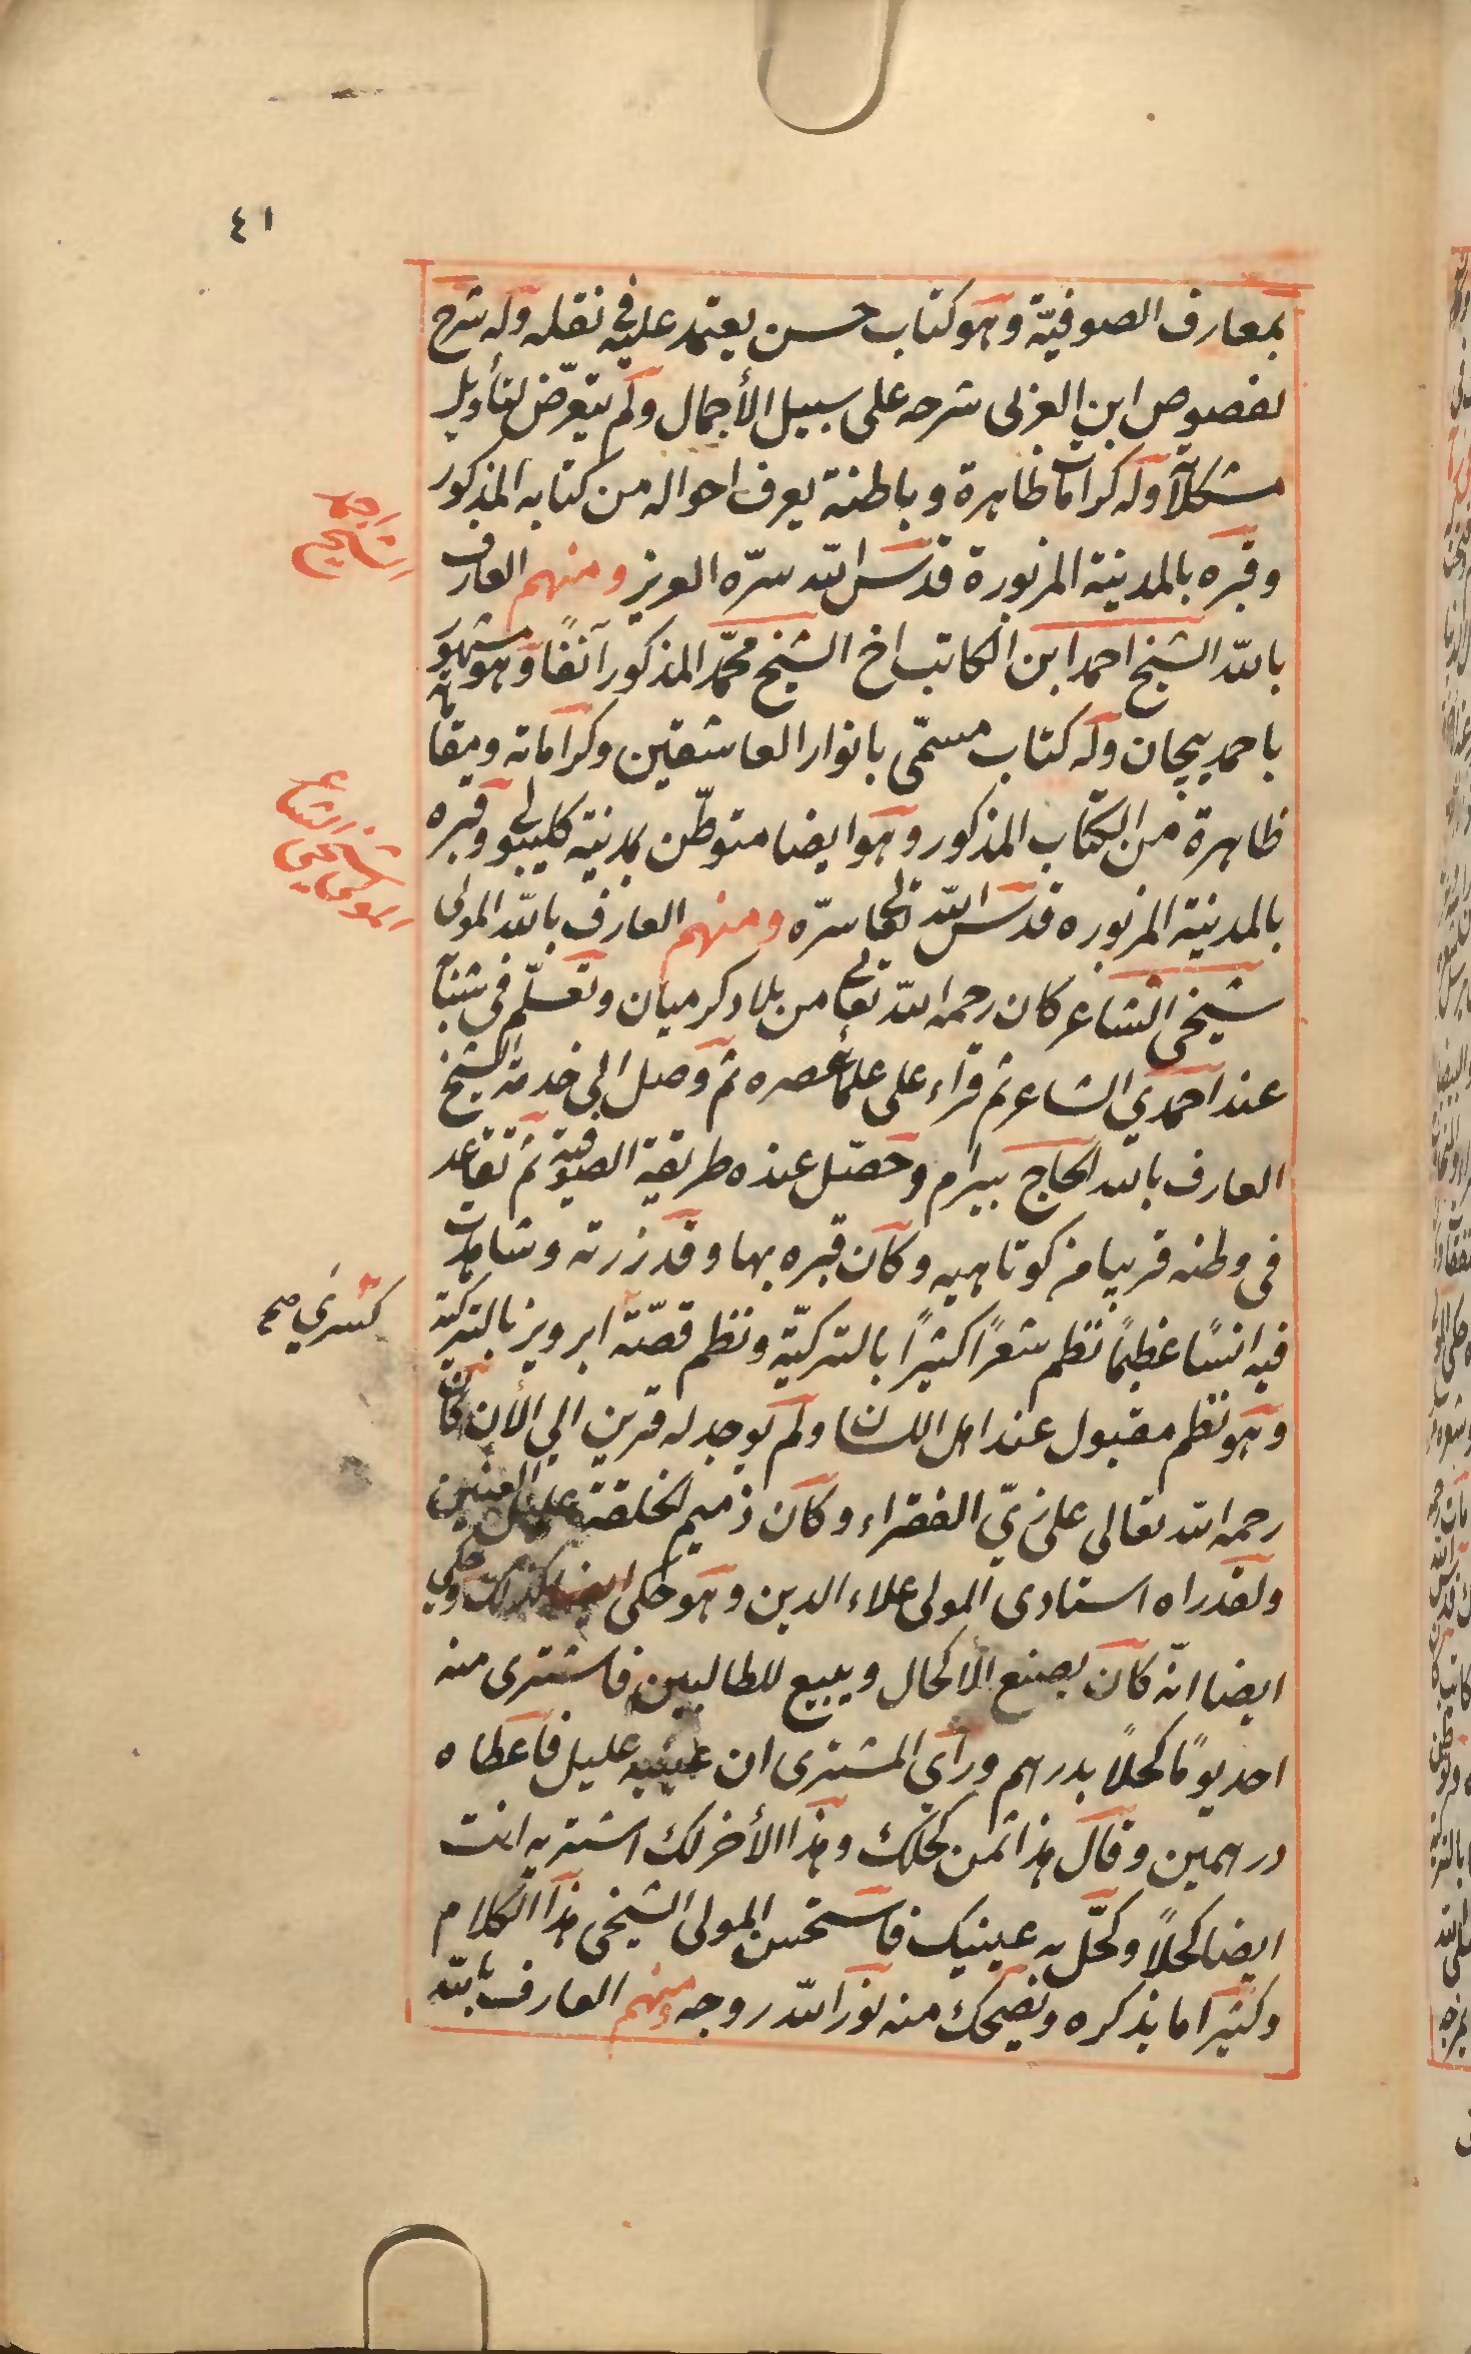 ٤١
بمعارف الصوفيّة وهو كتاب حسن يعتمد عليه في نقله وله شرح
لفصوص ابن العربى شرحه على سبيل الأجمال ولم يتعرّض لتأويل
مشكلآ وله كرامات ظاهرة وباطنة يعرف احواله من كتابه المذكور
وقبره بالمدينة المزبورة قدس الله سرّه العزيز ومنهم العارف
بالله الشيخ احمد ابن الكاتب اخ الشيخ محمّد المذكور آنفًا وهو مشهور
باحمد بيجان وله كتاب مسمّى بانوار العاشقين وكراماته ومقاماته
ظاهرة من الكتاب المذكور وهو ايضا متوطّن بمدينة كليبولى وقبره
بالمدينة المزبوره قدس الله تعالى سرّه ومنهم العارف بالله المولى
شيخى الشاعر كان رحمه الله تعالى من بلاد كرميان وتعلّم فى شبابه
عند احمدي الشاعر ثم قراء على علماء عصره ثم وصل الى خدمة الشيخ
العارف بالله الحاج بيرام وحصّل عنده طريقة الصوفية ثم تقاعد
فى وطنه قريبا من كوتاهيه وكان قبره بها وقد زرته وشاهدت
فيه انسًا عظيمًا نظم شعرًا كثيرًا بالتركيّة ونظم قصّة ابرويز بالتركية
وهو نظم مقبول عند اهل اللسان ولم يوجد له قرين الى الأن كان
رحمه الله تعالى على زيّ الفقراء وكان ذميم الخلقة عليل العينين
ولقد راه استادى المولى علاء الدين وهو حكى ايضا كذلك وحكى
ايضا انّه كان يصنع الاكحال ويبيع للطالبين فاشترى منه
احد يومًا كحلًا بدرهم ورأي المشترى ان عينيه عليل فاعطاه
درهمين وقال هذا ثمن كحلك وهذا الأخر لك اشتر به انت
ايضا كحلًا وكحّل به عينيك فاستحسن المولى الشيخى هذا الكلام
وكثيرا ما يذكره ويضحك منه نور الله روحه ومنهم العارف بالله
المولى شيخي الشاعر
كسرى صح